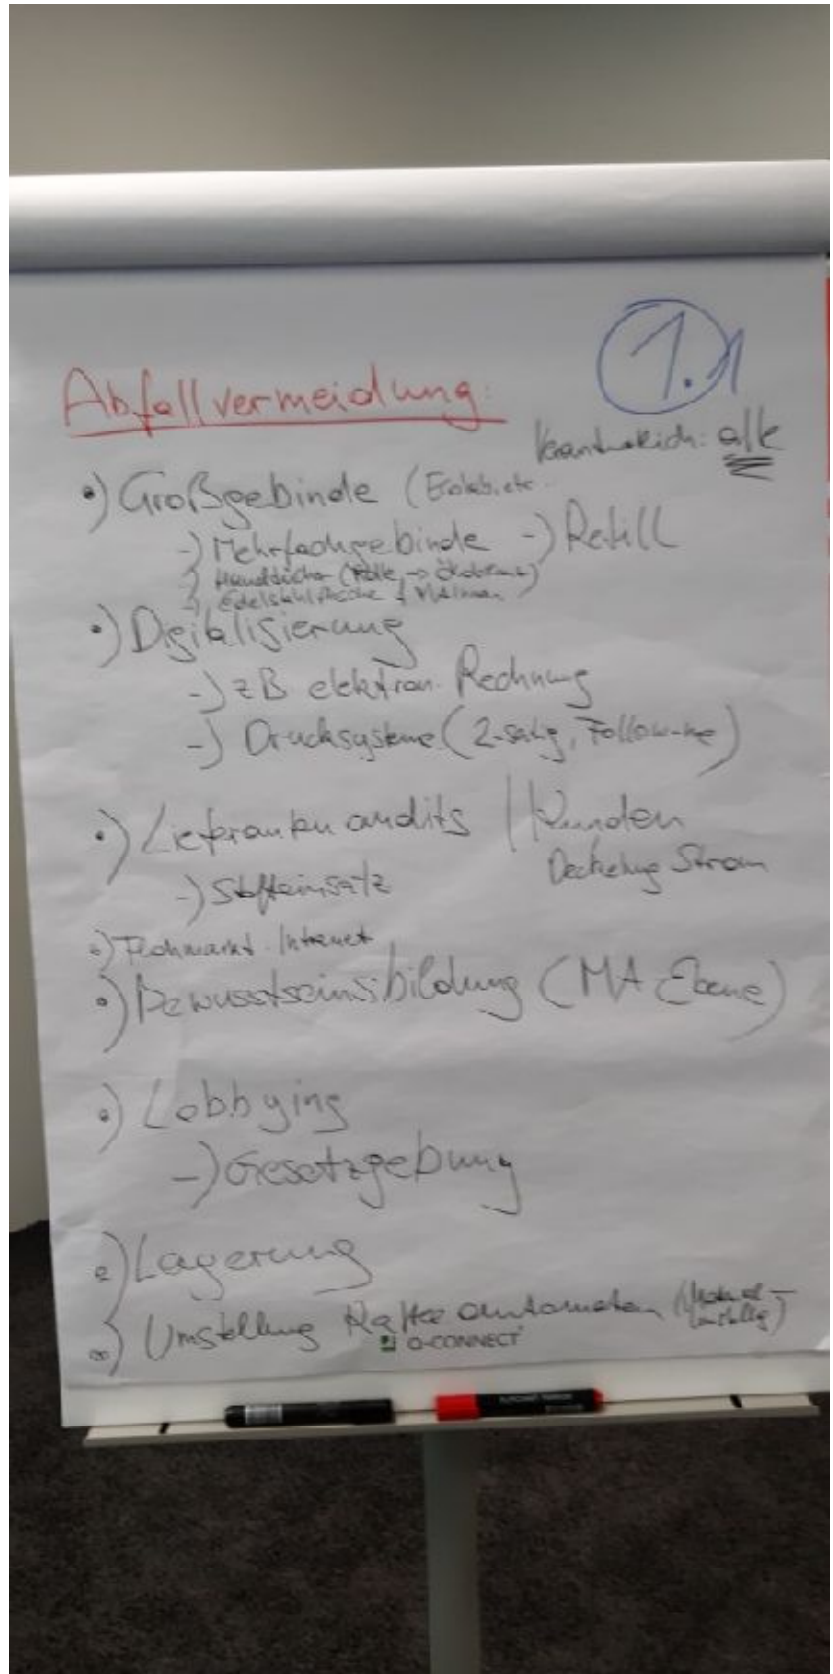 1.1
Abfallvermeidung:
verantwortlich: alle
•) Großgebinde (
-) Mehrfachgebinde -) Refill
-) Handtücher (Rolle →
-) Edelstahlflasche
•) Digitalisierung
-) zB elektron. Rechnung
-) Drucksysteme (2-seitig, Follow-me)
•) Lieferantenaudits / Kunden
-) Stoffeinsatz Strom
•) Flohmarkt Intranet
•) Bewusstseinsbildung (MA-Ebene)
•) Lobbying
-) Gesetzgebung
•) Lagerung
•) Umstellung Kaffeeautomaten
Q-CONNECT